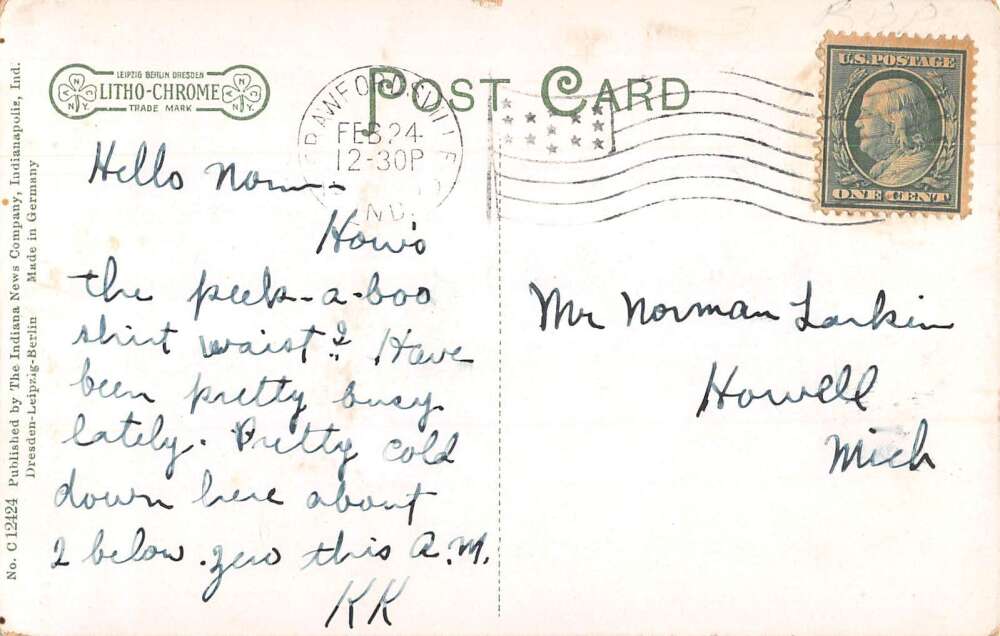 POST CARD
LEIPZIG BERLIN DRESDEN
LITHO-CHROME
TRADE MARK
N C N Y
N C N Y
CRAWFORDSVILLE
FEB 24
12-30P
IND.
U.S. POSTAGE
ONE CENT
Hello Norm—
How's
the peek-a-boo
shirt waist? Have
been pretty busy
lately. Pretty cold
down here about
2 below zero this A.M.
KK
Mr Norman Larkin
Howell
Mich
No. C 12424 Published by The Indiana News Company, Indianapolis, Ind.
Dresden-Leipzig-Berlin Made in Germany